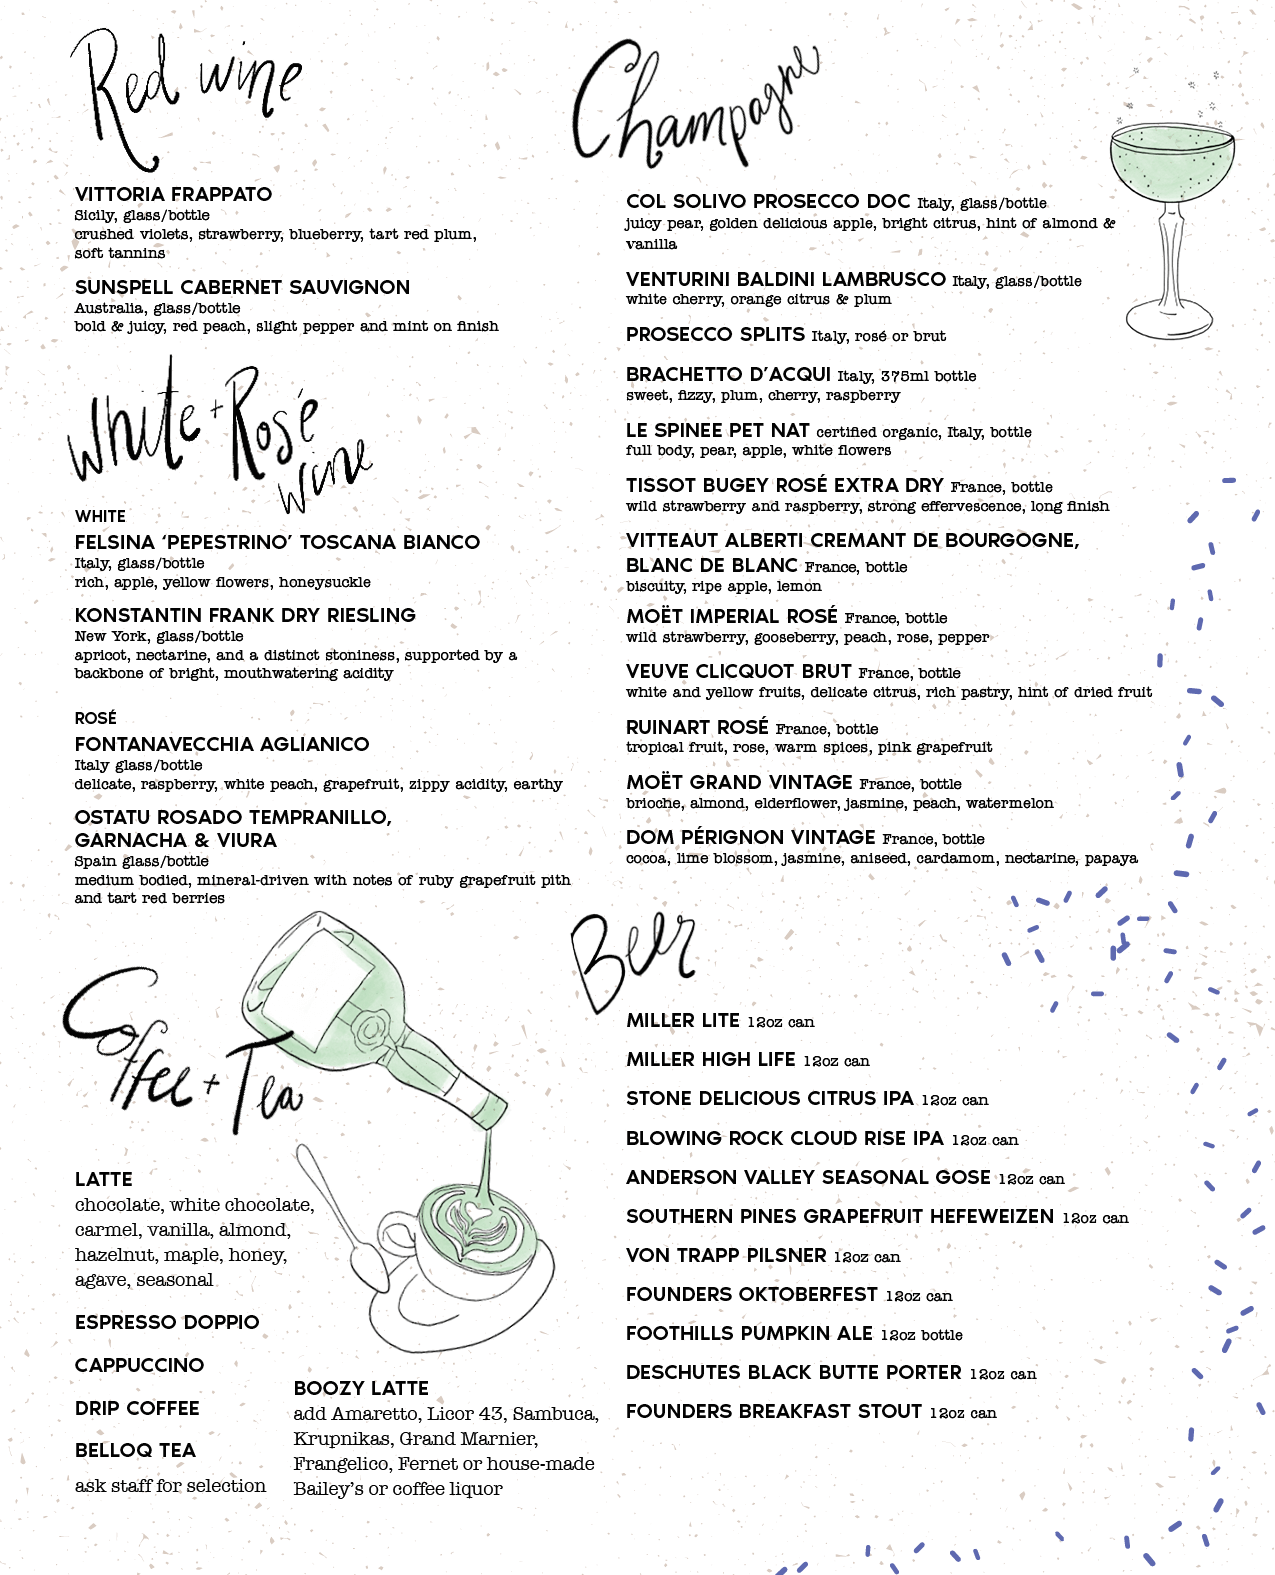 Red wine
VITTORIA FRAPPATO
Sicily, glass/bottle
crushed violets, strawberry, blueberry, tart red plum,
soft tannins
SUNSPELL CABERNET SAUVIGNON
Australia, glass/bottle
bold & juicy, red peach, slight pepper and mint on finish
White + Rosé
wine
WHITE
FELSINA ‘PEPESTRINO’ TOSCANA BIANCO
Italy, glass/bottle
rich, apple, yellow flowers, honeysuckle
KONSTANTIN FRANK DRY RIESLING
New York, glass/bottle
apricot, nectarine, and a distinct stoniness, supported by a
backbone of bright, mouthwatering acidity
ROSÉ
FONTANAVECCHIA AGLIANICO
Italy glass/bottle
delicate, raspberry, white peach, grapefruit, zippy acidity, earthy
OSTATU ROSADO TEMPRANILLO,
GARNACHA & VIURA
Spain glass/bottle
medium bodied, mineral-driven with notes of ruby grapefruit pith
and tart red berries
Coffee + Tea
LATTE
chocolate, white chocolate,
carmel, vanilla, almond,
hazelnut, maple, honey,
agave, seasonal
ESPRESSO DOPPIO
CAPPUCCINO
DRIP COFFEE
BELLOQ TEA
ask staff for selection
BOOZY LATTE
add Amaretto, Licor 43, Sambuca,
Krupnikas, Grand Marnier,
Frangelico, Fernet or house-made
Bailey’s or coffee liquor
Champagne
COL SOLIVO PROSECCO DOC Italy, glass/bottle
juicy pear, golden delicious apple, bright citrus, hint of almond &
vanilla
VENTURINI BALDINI LAMBRUSCO Italy, glass/bottle
white cherry, orange citrus & plum
PROSECCO SPLITS Italy, rosé or brut
BRACHETTO D’ACQUI Italy, 375ml bottle
sweet, fizzy, plum, cherry, raspberry
LE SPINEE PET NAT certified organic, Italy, bottle
full body, pear, apple, white flowers
TISSOT BUGEY ROSÉ EXTRA DRY France, bottle
wild strawberry and raspberry, strong effervescence, long finish
VITTEAUT ALBERTI CREMANT DE BOURGOGNE,
BLANC DE BLANC France, bottle
biscuity, ripe apple, lemon
MOËT IMPERIAL ROSÉ France, bottle
wild strawberry, gooseberry, peach, rose, pepper
VEUVE CLICQUOT BRUT France, bottle
white and yellow fruits, delicate citrus, rich pastry, hint of dried fruit
RUINART ROSÉ France, bottle
tropical fruit, rose, warm spices, pink grapefruit
MOËT GRAND VINTAGE France, bottle
brioche, almond, elderflower, jasmine, peach, watermelon
DOM PÉRIGNON VINTAGE France, bottle
cocoa, lime blossom, jasmine, aniseed, cardamom, nectarine, papaya
Beer
MILLER LITE 12oz can
MILLER HIGH LIFE 12oz can
STONE DELICIOUS CITRUS IPA 12oz can
BLOWING ROCK CLOUD RISE IPA 12oz can
ANDERSON VALLEY SEASONAL GOSE 12oz can
SOUTHERN PINES GRAPEFRUIT HEFEWEIZEN 12oz can
VON TRAPP PILSNER 12oz can
FOUNDERS OKTOBERFEST 12oz can
FOOTHILLS PUMPKIN ALE 12oz bottle
DESCHUTES BLACK BUTTE PORTER 12oz can
FOUNDERS BREAKFAST STOUT 12oz can